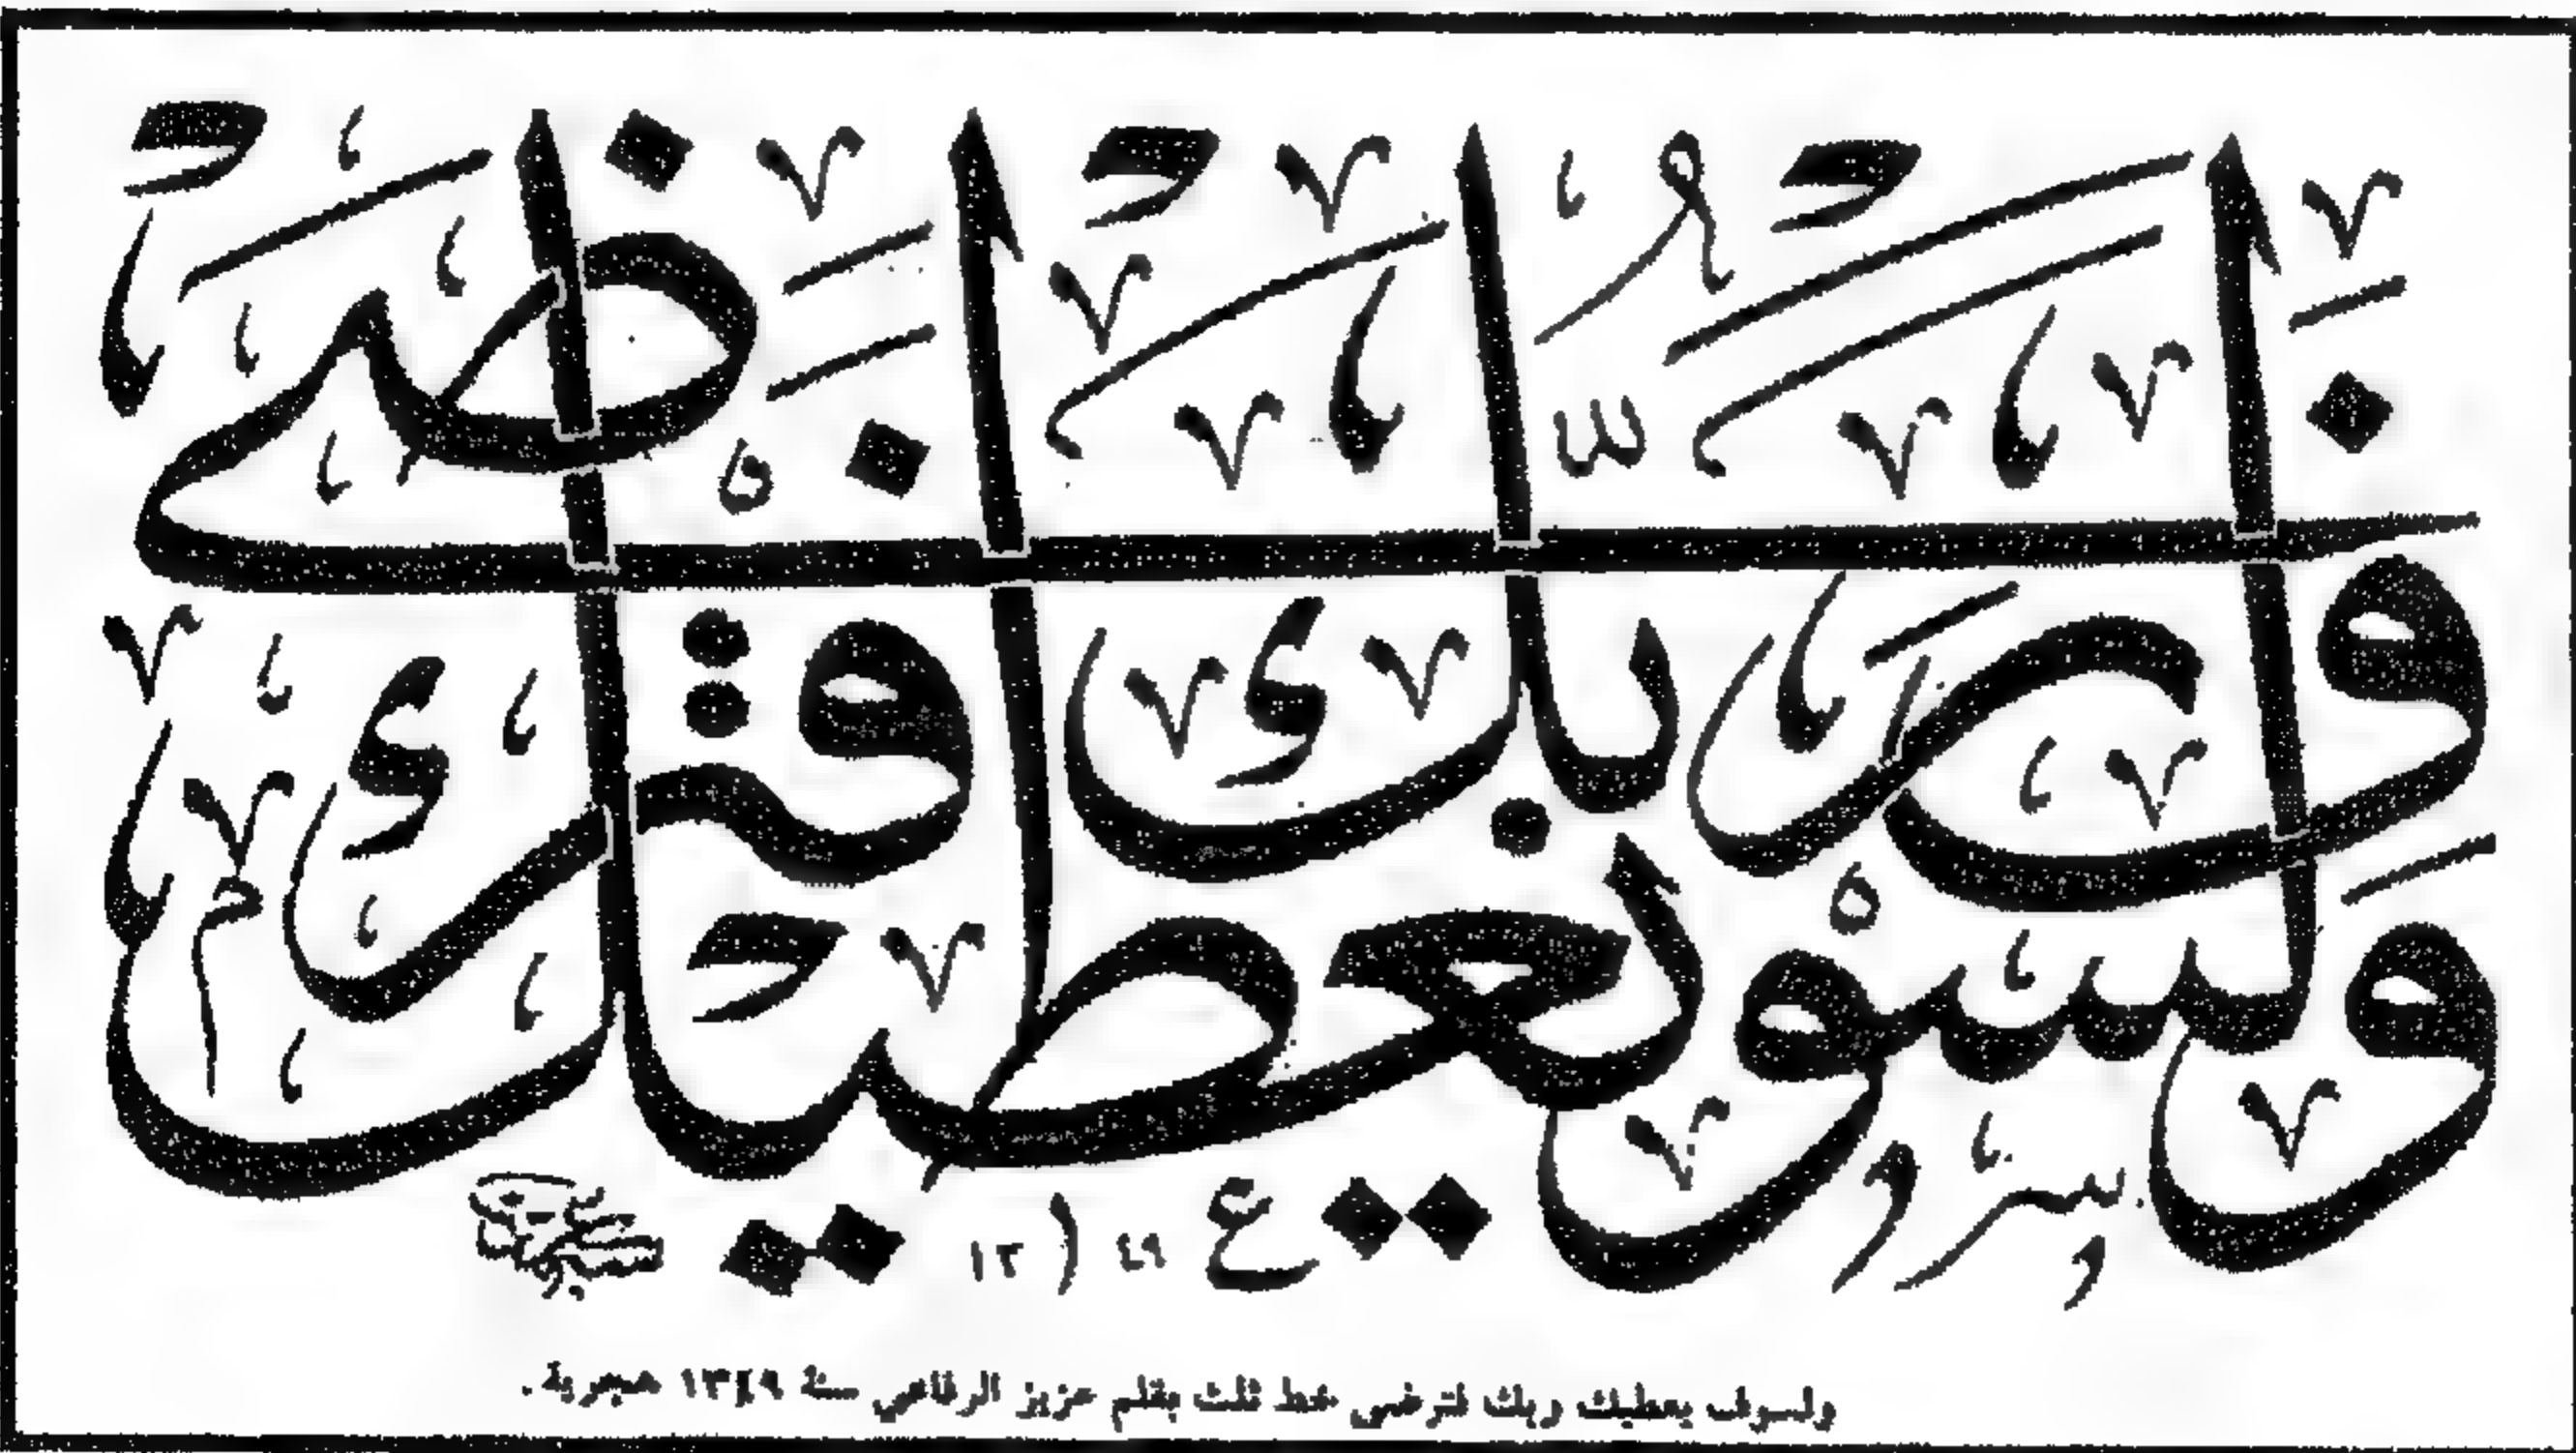 ولسوف يعطيك ربك فترضى
١٣٤٩
ولسوف يعطيك ربك فترضى خط ثلث بقلم عزيز الرفاعي سنة ١٣٤٩ هجرية .